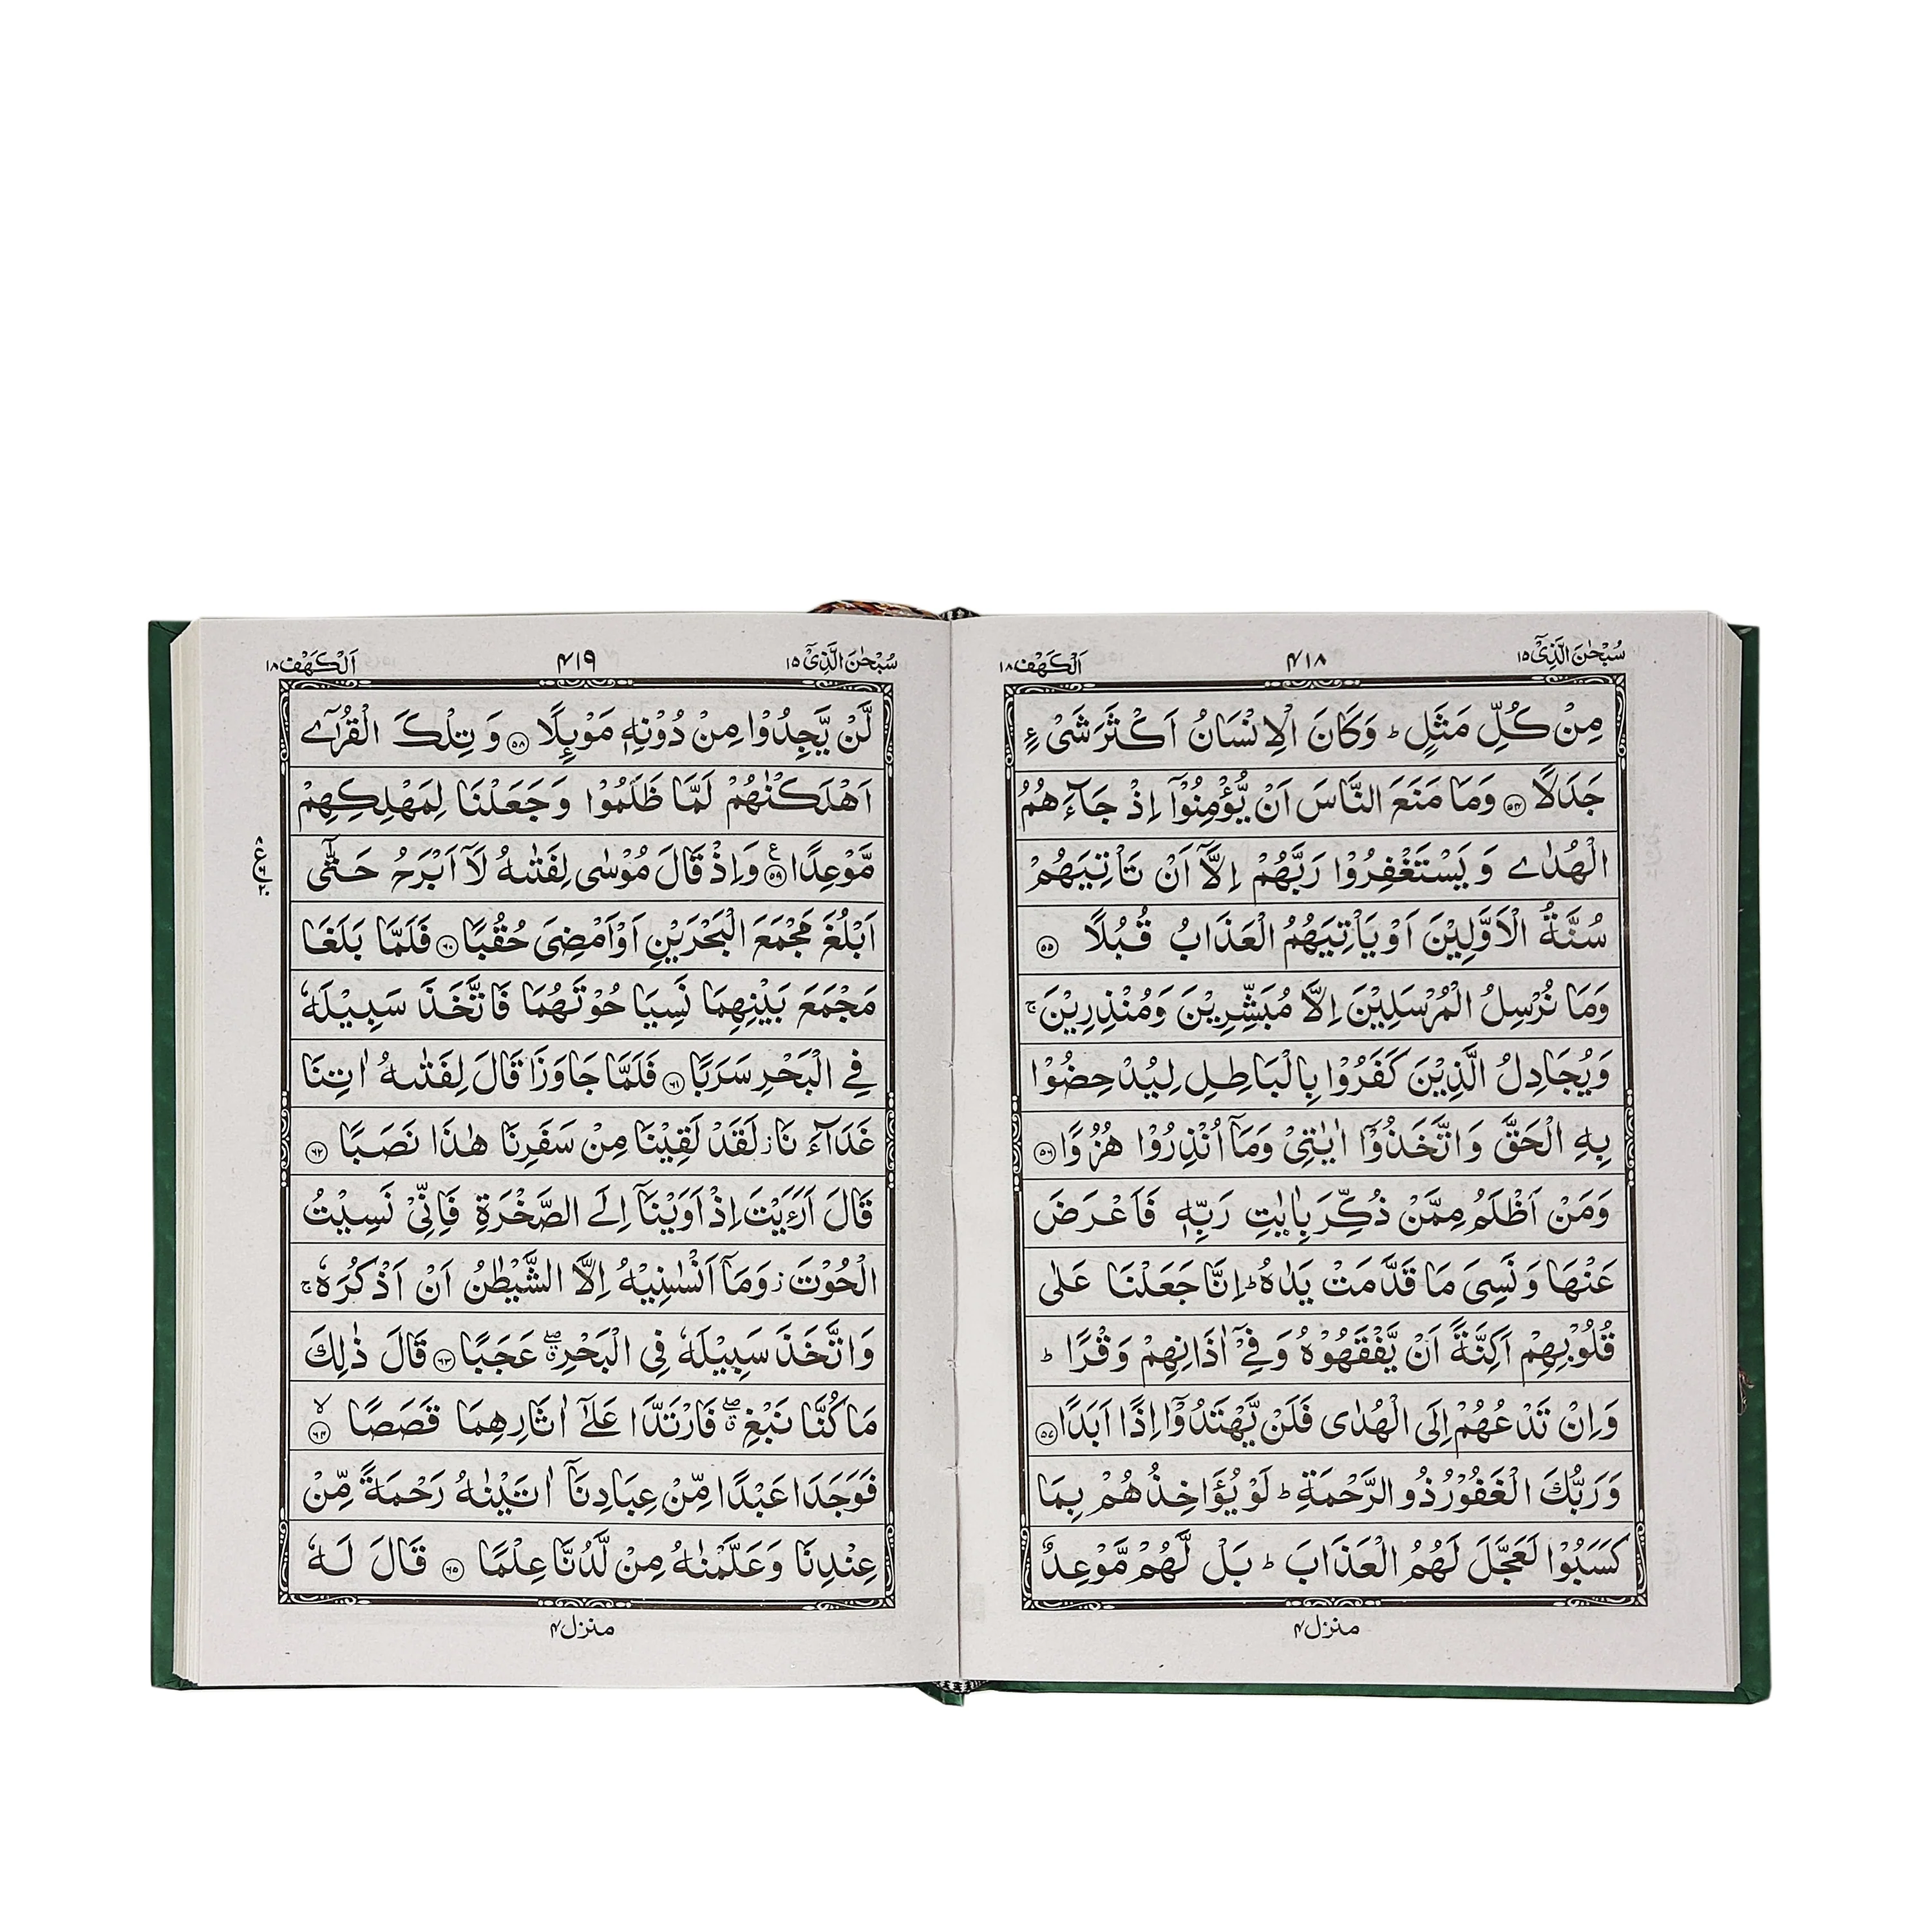 سُبْحٰنَ الَّذِیْۤ ۱۵
۴۱۸
اَلْكَهْف ۱۸
مِنْ كُلِّ مَثَلٍ ؕ وَكَانَ الْاِنْسَانُ اَكْثَرَ شَیْءٍ
جَدَلًا ۝۵۴ وَمَا مَنَعَ النَّاسَ اَنْ یُّؤْمِنُوْۤا اِذْ جَآءَهُمُ
الْهُدٰی وَ یَسْتَغْفِرُوْا رَبَّهُمْ اِلَّاۤ اَنْ تَاْتِیَهُمْ
سُنَّةُ الْاَوَّلِیْنَ اَوْ یَاْتِیَهُمُ الْعَذَابُ قُبُلًا ۝۵۵
وَمَا نُرْسِلُ الْمُرْسَلِیْنَ اِلَّا مُبَشِّرِیْنَ وَمُنْذِرِیْنَ ۚ
وَیُجَادِلُ الَّذِیْنَ كَفَرُوْا بِالْبَاطِلِ لِیُدْحِضُوْا
بِهِ الْحَقَّ وَاتَّخَذُوْۤا اٰیٰتِیْ وَمَاۤ اُنْذِرُوْا هُزُوًا ۝۵۶
وَمَنْ اَظْلَمُ مِمَّنْ ذُكِّرَ بِاٰیٰتِ رَبِّهٖ فَاَعْرَضَ
عَنْهَا وَ نَسِیَ مَا قَدَّمَتْ یَدٰهُ ؕ اِنَّا جَعَلْنَا عَلٰی
قُلُوْبِهِمْ اَكِنَّةً اَنْ یَّفْقَهُوْهُ وَفِیْۤ اٰذَانِهِمْ وَقْرًا ؕ
وَاِنْ تَدْعُهُمْ اِلَی الْهُدٰی فَلَنْ یَّهْتَدُوْۤا اِذًا اَبَدًا ۝۵۷
وَرَبُّكَ الْغَفُوْرُ ذُو الرَّحْمَةِ ؕ لَوْ یُؤَاخِذُهُمْ بِمَا
كَسَبُوْا لَعَجَّلَ لَهُمُ الْعَذَابَ ؕ بَلْ لَّهُمْ مَّوْعِدٌ
منزل۴
سُبْحٰنَ الَّذِیْۤ ۱۵
۴۱۹
اَلْكَهْف ۱۸
لَّنْ یَّجِدُوْا مِنْ دُوْنِهٖ مَوْىِٕلًا ۝۵۸ وَ تِلْكَ الْقُرٰۤی
اَهْلَكْنٰهُمْ لَمَّا ظَلَمُوْا وَ جَعَلْنَا لِمَهْلِكِهِمْ
مَّوْعِدًا ۝۵۹ؑ وَاِذْ قَالَ مُوْسٰی لِفَتٰىهُ لَاۤ اَبْرَحُ حَتّٰۤی
اَبْلُغَ مَجْمَعَ الْبَحْرَیْنِ اَوْ اَمْضِیَ حُقُبًا ۝۶۰ فَلَمَّا بَلَغَا
مَجْمَعَ بَیْنِهِمَا نَسِیَا حُوْتَهُمَا فَاتَّخَذَ سَبِیْلَهٗ
فِی الْبَحْرِ سَرَبًا ۝۶۱ فَلَمَّا جَاوَزَا قَالَ لِفَتٰىهُ اٰتِنَا
غَدَآءَنَا ؗ لَقَدْ لَقِیْنَا مِنْ سَفَرِنَا هٰذَا نَصَبًا ۝۶۲
قَالَ اَرَءَیْتَ اِذْ اَوَیْنَاۤ اِلَی الصَّخْرَةِ فَاِنِّیْ نَسِیْتُ
الْحُوْتَ ؗ وَمَاۤ اَنْسٰىنِیْهُ اِلَّا الشَّیْطٰنُ اَنْ اَذْكُرَهٗ ۚ
وَاتَّخَذَ سَبِیْلَهٗ فِی الْبَحْرِ ۖۗ عَجَبًا ۝۶۳ قَالَ ذٰلِكَ
مَا كُنَّا نَبْغِ ۖۗ فَارْتَدَّا عَلٰۤی اٰثَارِهِمَا قَصَصًا ۝۶۴ۙ
فَوَجَدَا عَبْدًا مِّنْ عِبَادِنَاۤ اٰتَیْنٰهُ رَحْمَةً مِّنْ
عِنْدِنَا وَعَلَّمْنٰهُ مِنْ لَّدُنَّا عِلْمًا ۝۶۵ قَالَ لَهٗ
منزل۴